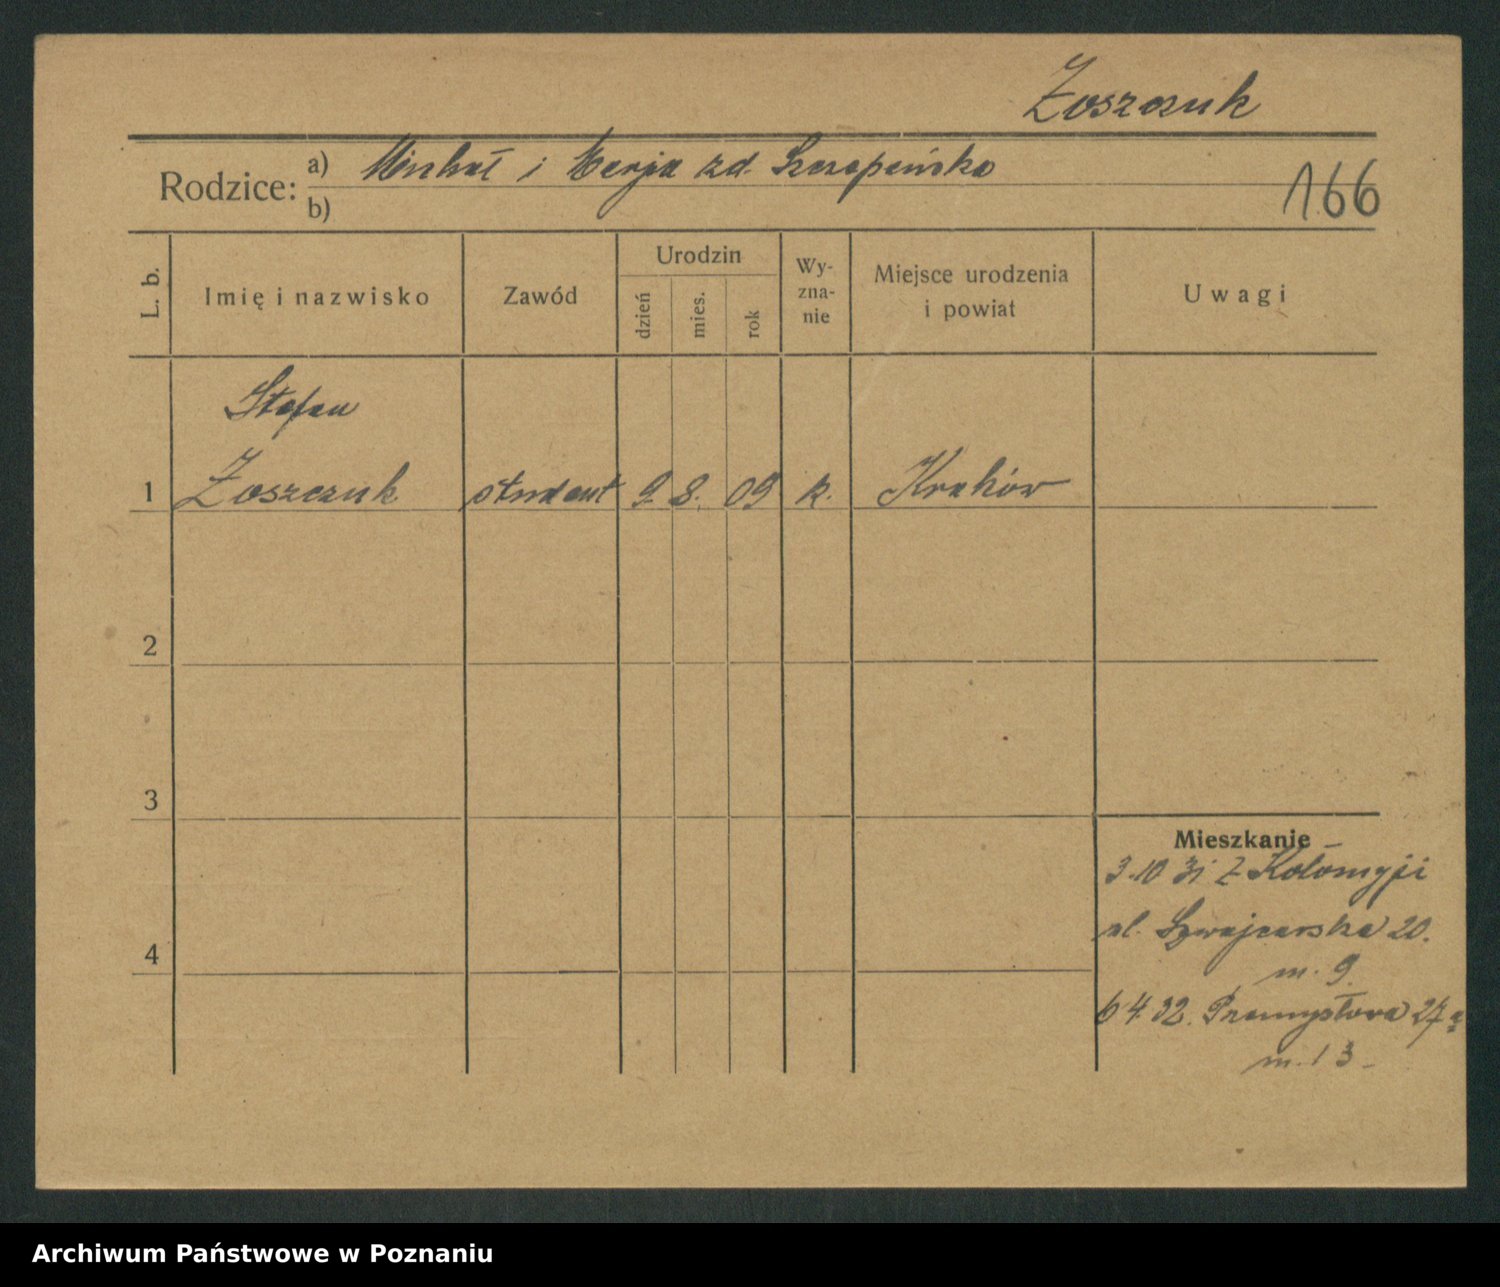 Żoszczuk
Rodzice: a) Michał i Marja zd. Szczepańska
b)
166
L. b. Imię i nazwisko Zawód Urodzin dzień mies. rok Wy-zna-nie Miejsce urodzenia i powiat Uwagi
Stefan
1 Żoszczuk student 9. 8. 09 k. Kraków
2
3
4
Mieszkanie
3.10 31 z Kołomyji
ul. Szwajcarska 20.
m. 9.
6 4 32. Przemysłowa 27a
m. 13-
Archiwum Państwowe w Poznaniu